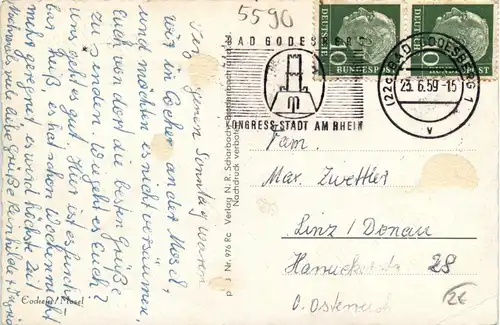 5590
BAD GODESBERG
KONGRESS-STADT AM RHEIN
10 DEUTSCHE BUNDESPOST
10 DEUTSCHE BUNDESPOST
(22c) BAD GODESBERG 1
23.6.59-15
v
Vergangenen Sonntag waren
wir in Cochem an der Mosel,
und möchten es nicht versäumen,
euch von dort die besten Grüße
zu senden. Wie geht es Euch?
Uns geht es gut. Hier ist es furcht-
bar heiß, es hat schon Wochen nicht
mehr geregnet, es wird höchste Zeit.
Nochmals viele liebe Grüße Reinhilde +
Cochem/Mosel
d J Nr. 976 Rc Verlag N. R. Scharbach, Bendorf
Nachdruck verboten
Fam.
Max Zwettler
Linz / Donau
28
O. Österreich
2€